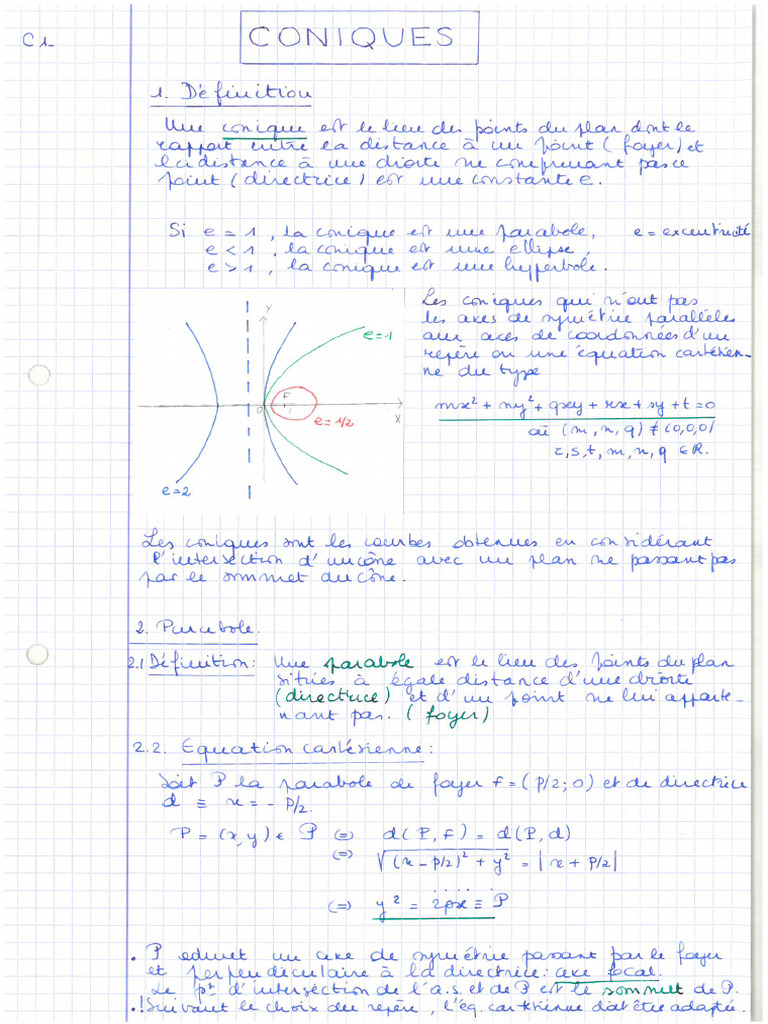 C1.
CONIQUES
1. Définition
Une conique est le lieu des points du plan dont le
rapport entre la distance à un point (foyer) et
la distance à une droite ne comprenant pas ce
point (directrice) est une constante e.
Si e = 1, la conique est une parabole, e = excentricité
e < 1, la conique est une ellipse,
e > 1, la conique est une hyperbole.
Les coniques qui n'ont pas
les axes de symétrie parallèles
aux axes de coordonnées d'un
repère ou une équation cartésien-
ne du type
mx² + ny² + qxy + rx + sy + t = 0
où (m, n, q) ≠ (0,0,0)
r, s, t, m, n, q ∈ R.
Y
e=1
F
O
1
X
e = 1/2
e=2
Les coniques sont les courbes obtenues en considérant
l'intersection d'un cône avec un plan ne passant pas
par le sommet du cône.
2. Parabole.
2.1 Définition: Une parabole est le lieu des points du plan
situés à égale distance d'une droite
(directrice) et d'un point ne lui apparte-
nant pas. (foyer)
2.2. Equation cartésienne:
Soit P la parabole de foyer F = (P/2; 0) et de directrice
d ≡ x = - P/2.
P = (x, y) ∈ P (=) d(P, F) = d(P, d)
(=) √(x - P/2)² + y² = |x + P/2|
(=) y² = 2px ≡ P
• P admet un axe de symétrie passant par le foyer
et perpendiculaire à la directrice: axe focal.
Le pt d'intersection de l'a.s et de P est le sommet de P.
•! Suivant le choix du repère, l'éq. cartésienne doit être adaptée.